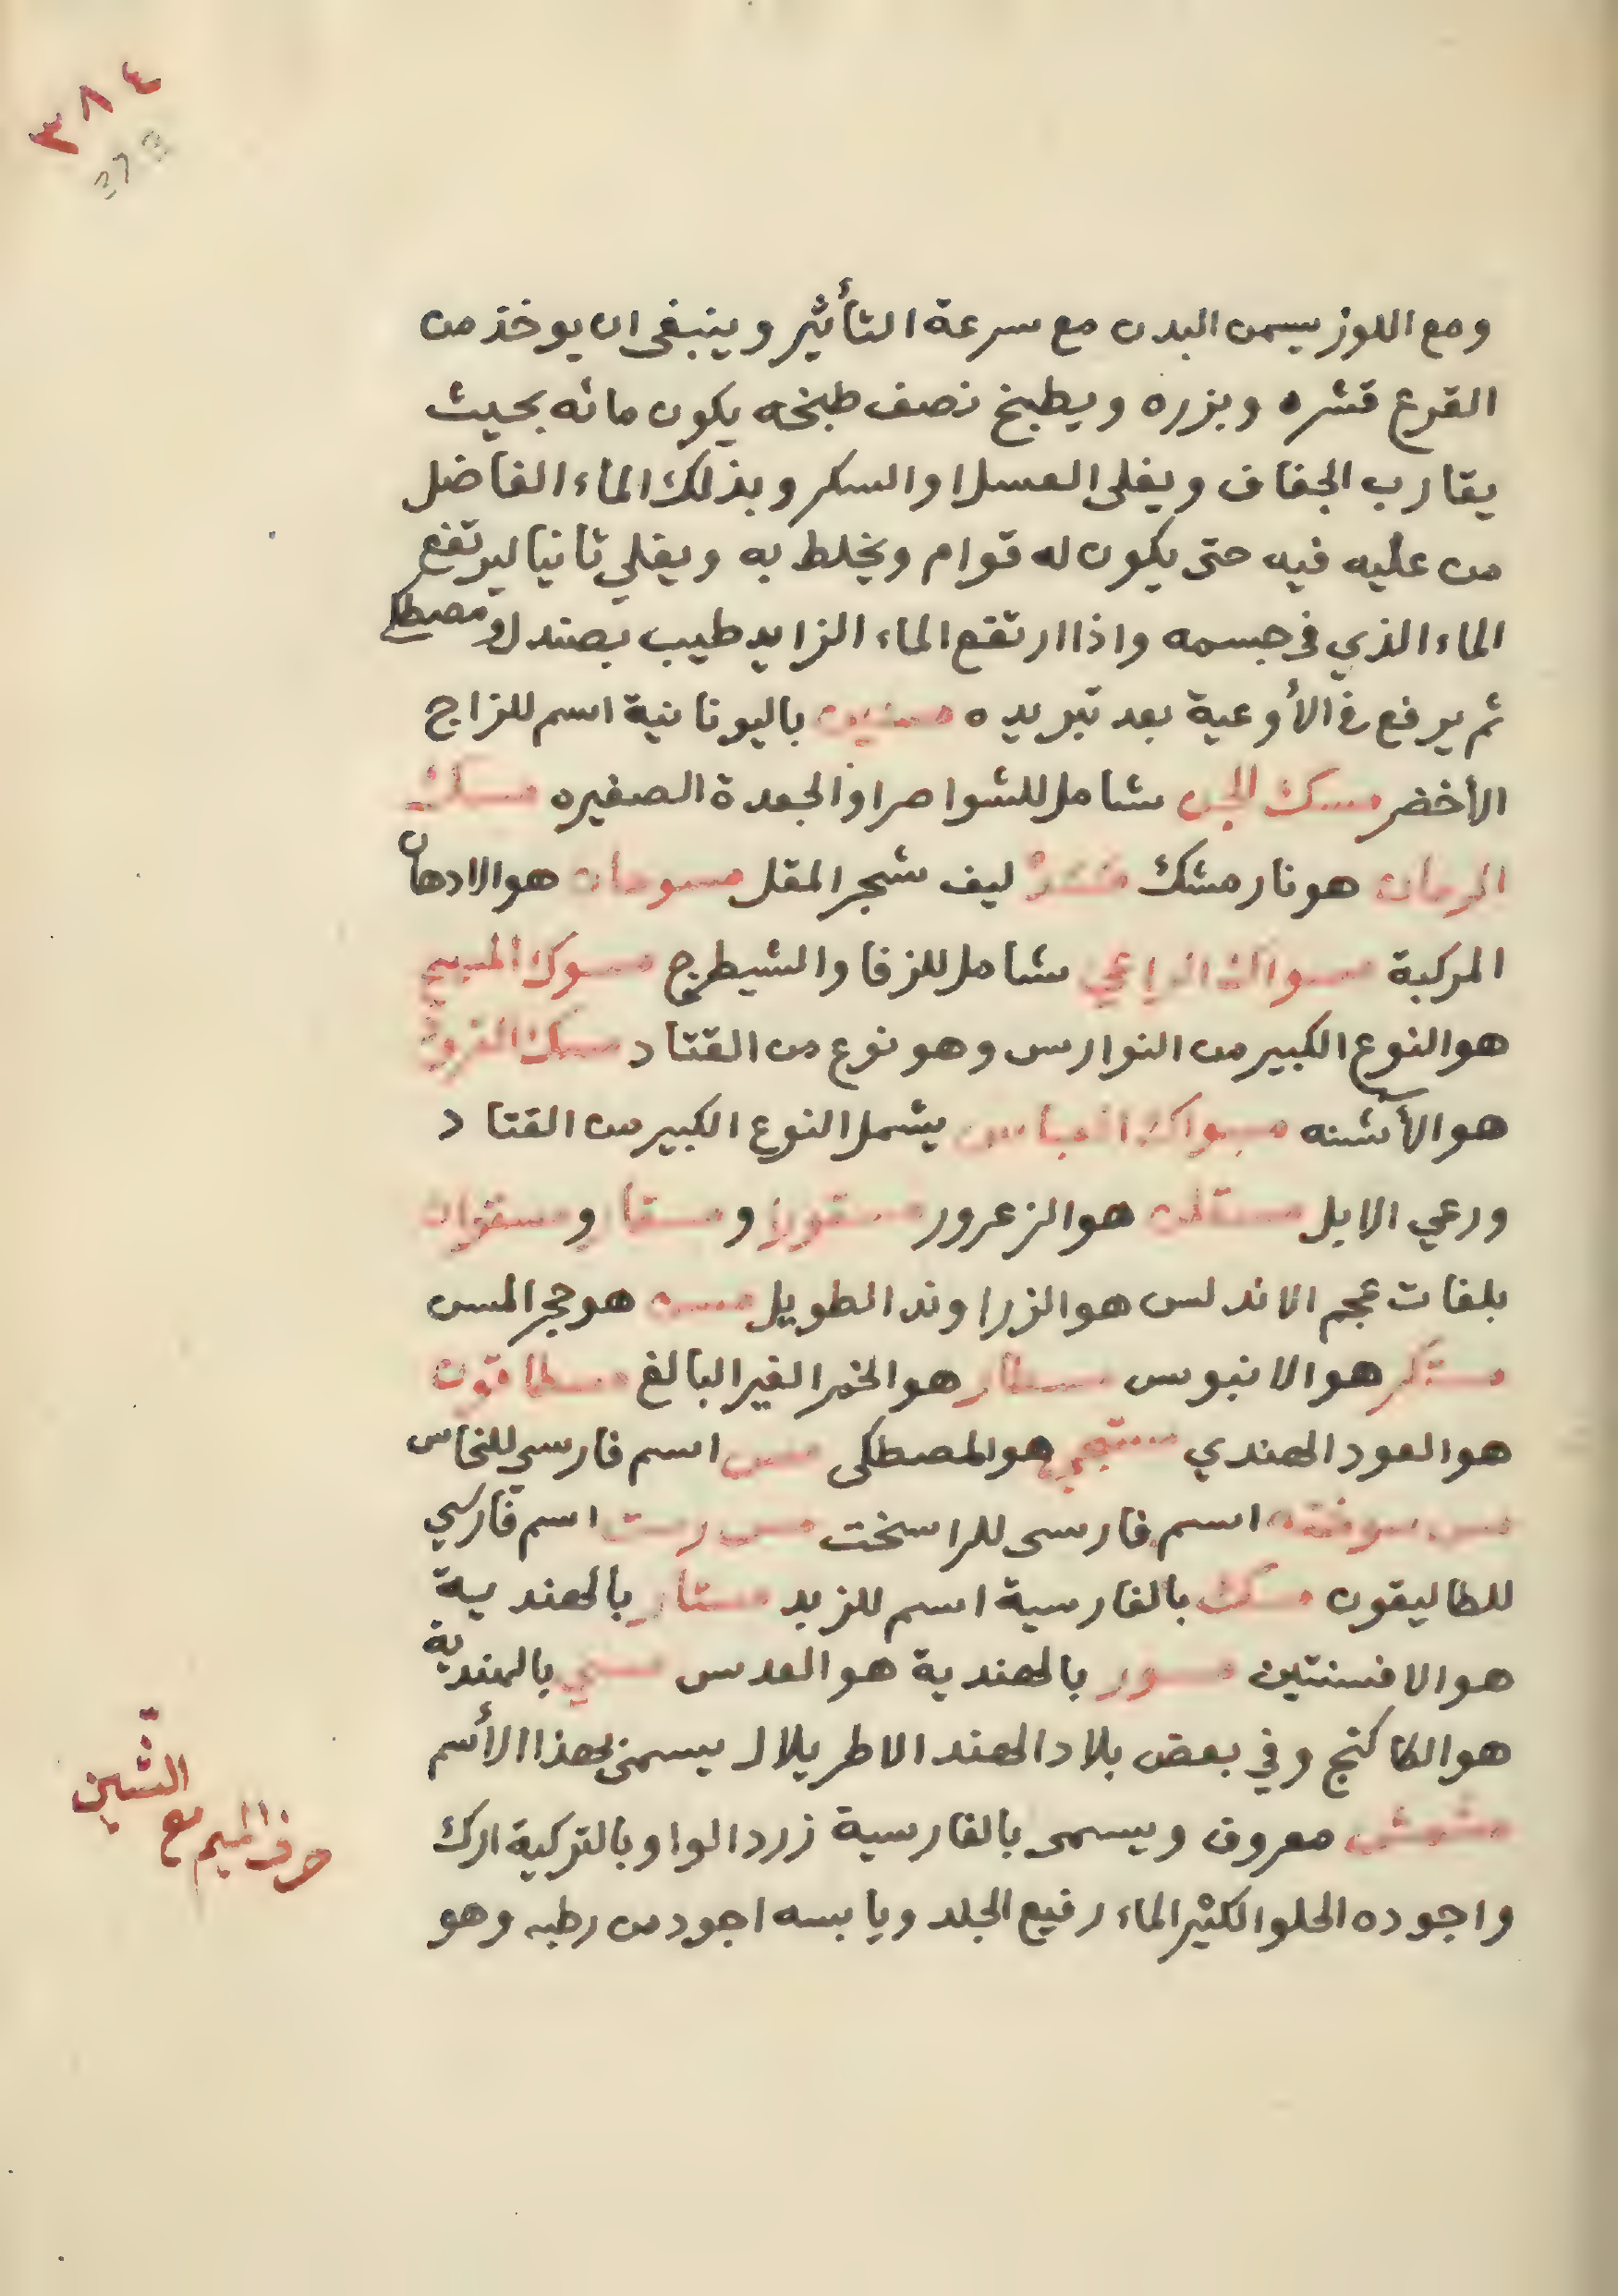 ٣٨٤
373
ومع اللوز يسمن البدن مع سرعة التأثير وينبغى ان يوخذ من
القرع قشره وبزره ويطبخ نصف طبخه يكون مائه بحيث
يقارب الجفاف ويغلى العسل او السكر وبذلك الماء الفاضل
من عليه فيه حتى يكون له قوام ويخلط به ويغلي ثانيا ليرتفع
الماء الذي فى جسمه واذا ارتفع الماء الزايد طيب بصندل ومصطكى
ثم يرفع فى الأوعية بعد تبريده باليونانية اسم للزاج
الأخضر مسك الجن شامل للشواصرا والجعدة الصغيره مسك
الرمان هو نارمشك ليف شجر المقل مسوحات هو الادهان
المركبة مسواك الراعي شامل للزفا والشيطرج مسوك المسيح
هو النوع الكبير من النوارس وهو نوع من القتاد مسك القرون
هو الأشنه مسواك العباس يشمل النوع الكبير من القتاد
ورعي الابل هو الزعرور مستقورا و مستقار و مستقران
بلغات عجم الاندلس هو الزراوند الطويل مسن هو حجر المسن
مستكر هو الانبوس مسطار هو الخمر الغير البالغ مسطاقون
هو العود الهندي هو المصطكى مس اسم فارسي للنحاس
مس سوخته اسم فارسى للراسخت مس رست اسم فارسي
للطاليقون مسكت بالفارسية اسم للزبد مستار بالهندية
هو الافسنتين مسور بالهندية هو العدس مسي بالهندية
هو الكاكنج وفي بعض بلاد الهند الاطريلال يسمى بهذا الأسم
مشمش معروف ويسمى بالفارسية زردالوا وبالتركية ارك
واجوده الحلو الكثير الماء رفيع الجلد ويابسه اجود من رطبه وهو
حرف الميم مع الشين